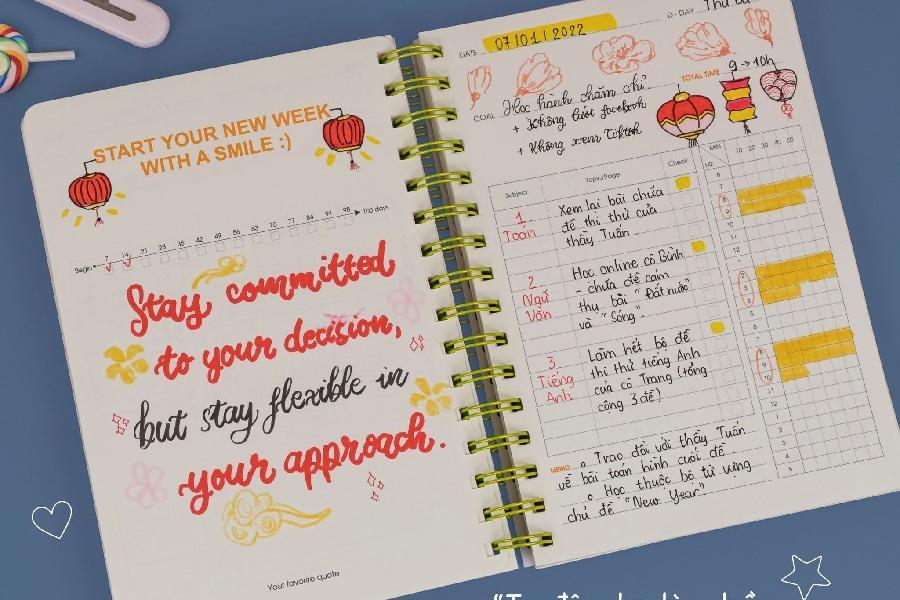 START YOUR NEW WEEK
WITH A SMILE :)
Begin
7 14 21 28 35 42 49 56 63 70 77 84 91 98 100 days
Stay committed
to your decision,
but stay flexible in
your approach.
Your favorite quote
DATE 07 | 01 | 2022
D-DAY Thứ
GOAL Học hành chăm chỉ
+ Không lướt facebook
+ Không xem Tiktok
TOTAL TIME 9 → 10h
Subject Topic/Page Check
MIN 10 20 30 40 50
HR
1
Toán
Xem lại bài chữa
đề thi thử của
thầy Tuấn
2
Ngữ
Văn
Học online cô Bình
- chữa đề cảm
thụ bài "Đất nước"
và "Sóng".
3
Tiếng
Anh
Làm hết bộ đề
thi thử tiếng Anh
của cô Trang (tổng
cộng 3 đề)
MEMO o Trao đổi với thầy Tuấn
về bài toán hình cuối đề
o Học thuộc bộ từ vựng
chủ đề "New Year"